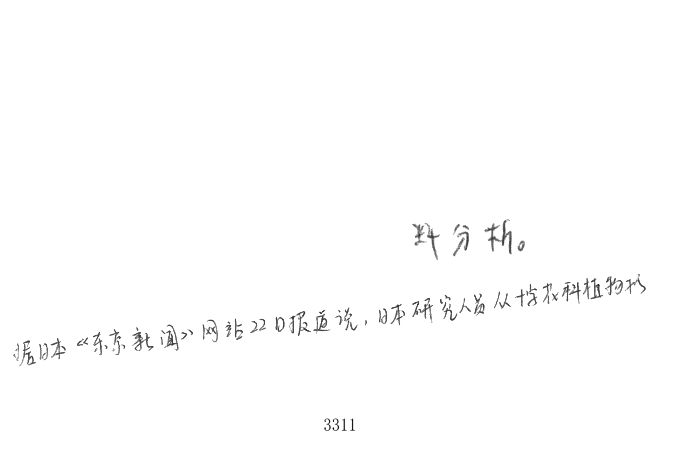 料分析。
据日本《东京新闻》网站22日报道说，日本研究人员从十字花科植物杉
3311